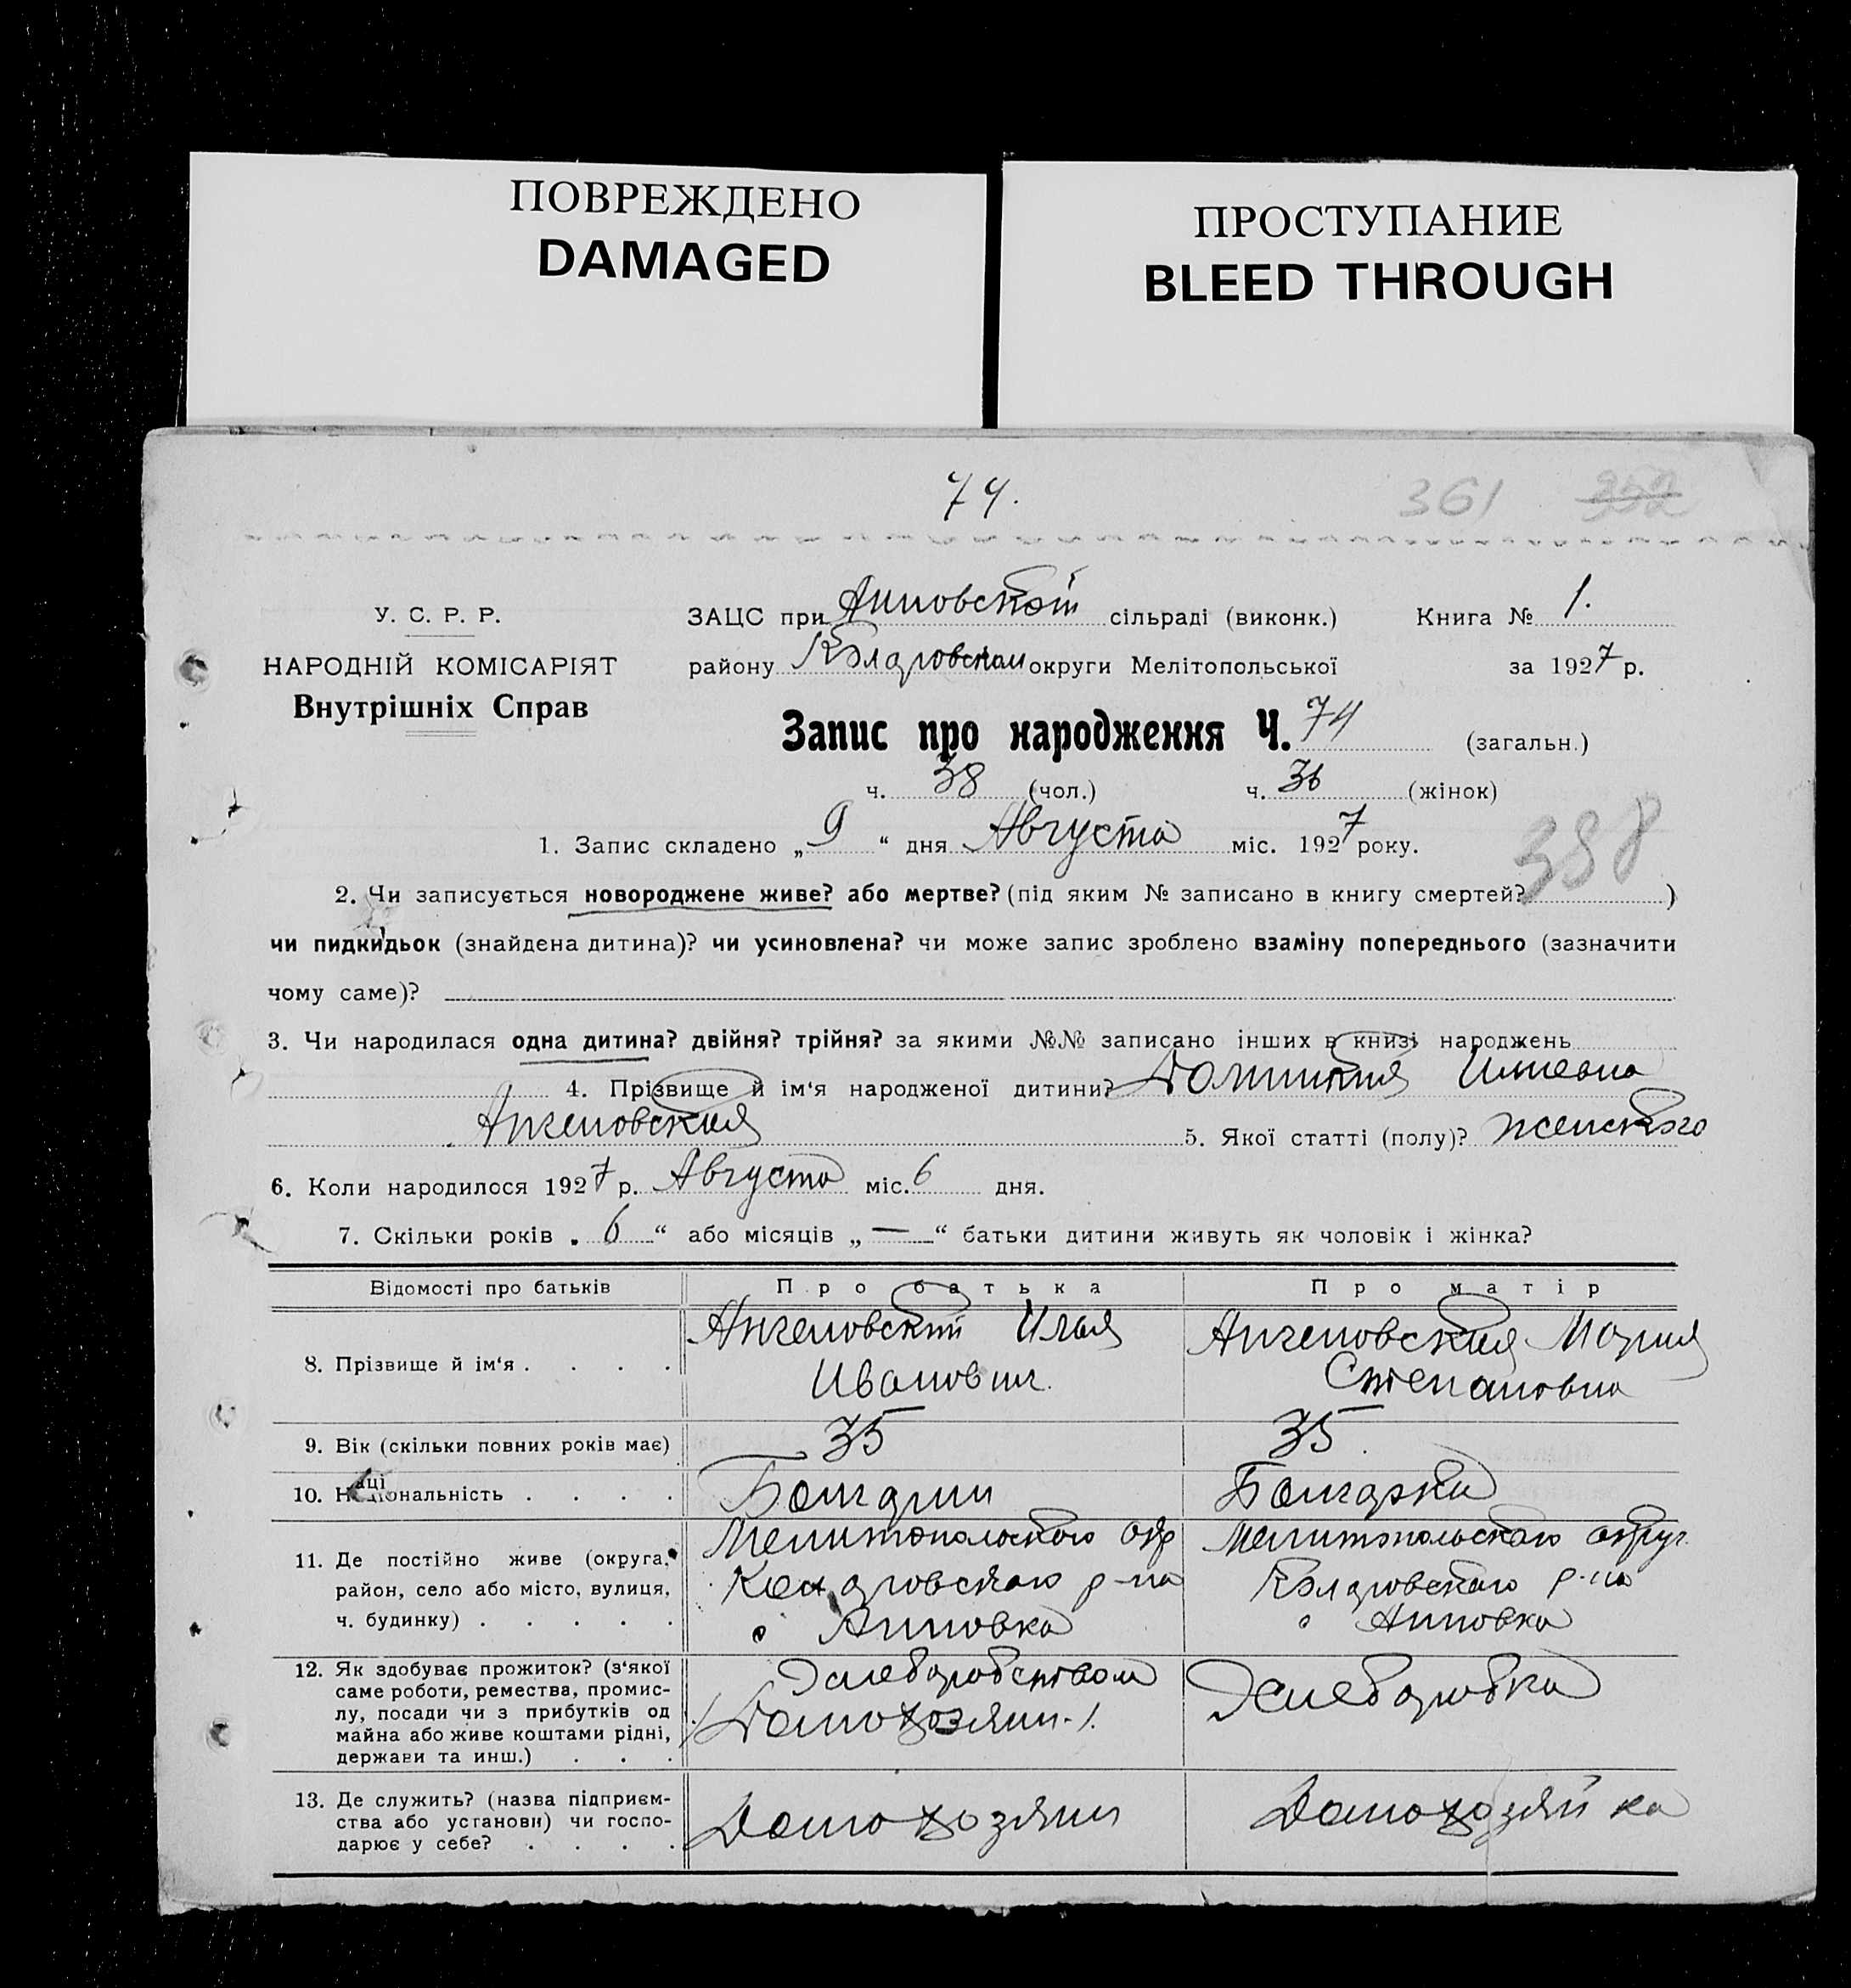 ПОВРЕЖДЕНО
DAMAGED
ПРОСТУПАНИЕ
BLEED THROUGH
74.
361 352
У. С. Р. Р.
НАРОДНІЙ КОМІСАРІЯТ
Внутрішніх Справ
ЗАЦС при Анновской сільраді (виконк.) Книга № 1.
району Коларовском округи Мелітопольської за 1927 р.
Запис про народження Ч. 74 (загальн.)
ч. 38 (чол.) ч. 36 (жінок)
1. Запис складено „ 9 “ дня Августа міс. 1927 року.
388
2. Чи записується новороджене живе? або мертве? (під яким № записано в книгу смертей? )
чи пидкидьок (знайдена дитина)? чи усиновлена? чи може запис зроблено взаміну попереднього (зазначити
чому саме)?
3. Чи народилася одна дитина? двійня? трійня? за якими №№ записано інших в книзі народжень
4. Прізвище й ім‘я народженої дитини? Домникия Илиевна
Ангеловская 5. Якої статті (полу)? женского
6. Коли народилося 1927 р. Августа міс. 6 дня.
7. Скільки років „ 6 “ або місяців „ — “ батьки дитини живуть як чоловік і жінка?
Відомості про батьків Про батька Про матір
8. Прізвище й ім‘я . . . . Ангеловский Илья Ангеловская Мария
Иванович. Степановна
9. Вік (скільки повних років має) 35 35
10. Національність . . . . Болгарин Болгарка
11. Де постійно живе (округа, Мелитопольского окр Мелитопольского округ.
район, село або місто, вулиця, Коларовского р-на Коларовского р-на
ч. будинку) . . . . . с Анновка с Анновка
12. Як здобуває прожиток? (з‘якої Хлеборобством Хлеборобка
саме роботи, ремества, промис-
лу, посади чи з прибутків од Домохозяин.
майна або живе коштами рідні,
держави та инш.) . . .
13. Де служить? (назва підприєм-
ства або установи) чи госпо- Домохозяин Домохозяйка
дарює у себе? . . . .